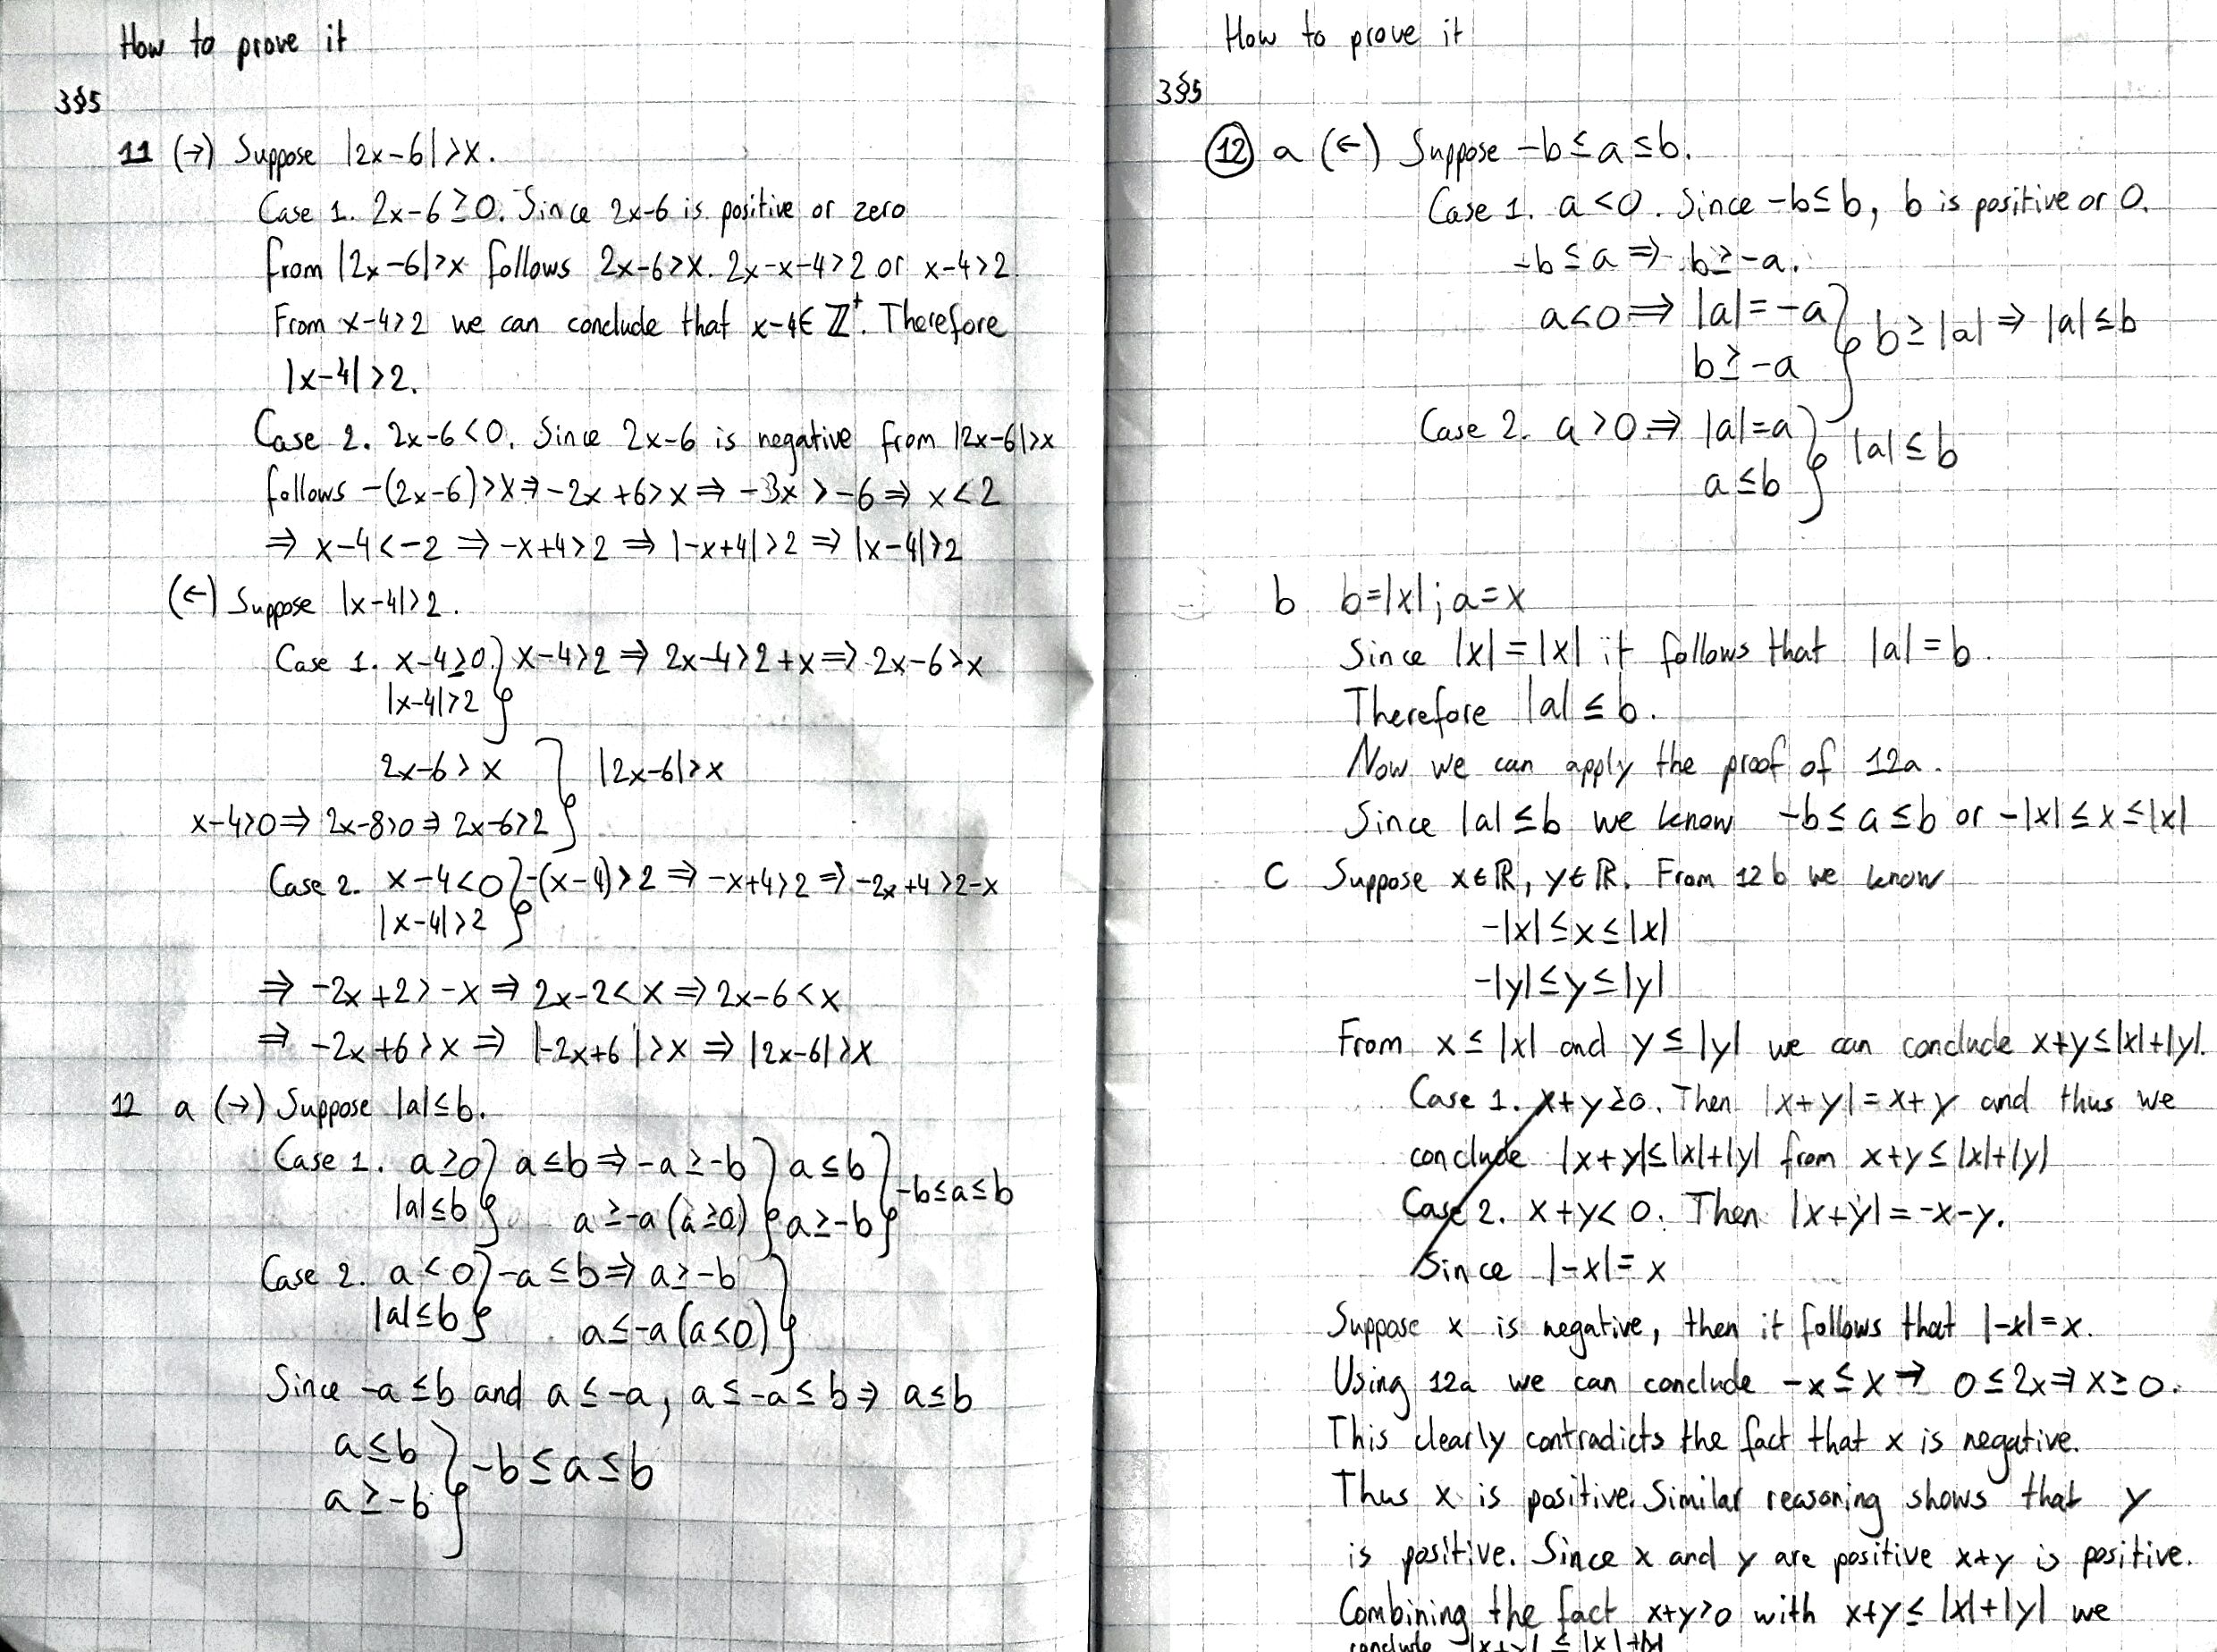 How to prove it
3§5
11 (→) Suppose |2x-6|>x.
Case 1. 2x-6≥0. Since 2x-6 is positive or zero
from |2x-6|>x follows 2x-6>x. 2x-x-4>2 or x-4>2
From x-4>2 we can conclude that x-4∈ℤ⁺. Therefore
|x-4|>2.
Case 2. 2x-6<0. Since 2x-6 is negative from |2x-6|>x
follows -(2x-6)>x⇒-2x+6>x⇒-3x>-6⇒x<2
⇒x-4<-2⇒-x+4>2⇒|-x+4|>2⇒|x-4|>2
(←) Suppose |x-4|>2.
Case 1. x-4≥0.} x-4>2⇒2x-4>2+x⇒2x-6>x
|x-4|>2
2x-6>x } |2x-6|>x
x-4>0⇒2x-8>0⇒2x-6>2
Case 2. x-4<0}-(x-4)>2⇒-x+4>2⇒-2x+4>2-x
|x-4|>2
⇒-2x+2>-x⇒2x-2<x⇒2x-6<x
⇒-2x+6>x⇒|-2x+6|>x⇒|2x-6|>x
12 a (→) Suppose |a|≤b.
Case 1. a≥0} a≤b⇒-a≥-b } a≤b } -b≤a≤b
|a|≤b} a≥-a (a≥0) } a≥-b }
Case 2. a<0}-a≤b⇒a≥-b }
|a|≤b} a≤-a (a<0) }
Since -a≤b and a≤-a, a≤-a≤b⇒a≤b
a≤b } -b≤a≤b
a≥-b
How to prove it
3§5
12 a (←) Suppose -b≤a≤b.
Case 1. a<0. Since -b≤b, b is positive or 0.
-b≤a⇒b≥-a.
a<0⇒|a|=-a } b≥|a|⇒|a|≤b
b≥-a
Case 2. a>0⇒|a|=a } |a|≤b
a≤b
b b=|x|; a=x
Since |x|=|x| it follows that |a|=b.
Therefore |a|≤b.
Now we can apply the proof of 12a.
Since |a|≤b we know -b≤a≤b or -|x|≤x≤|x|
c Suppose x∈ℝ, y∈ℝ. From 12b we know
-|x|≤x≤|x|
-|y|≤y≤|y|
From x≤|x| and y≤|y| we can conclude x+y≤|x|+|y|.
Case 1. x+y≥0. Then |x+y|=x+y and thus we
conclude |x+y|≤|x|+|y| from x+y≤|x|+|y|
Case 2. x+y<0. Then |x+y|=-x-y.
Since |-x|=x
Suppose x is negative, then it follows that |-x|=x.
Using 12a we can conclude -x≤x⇒0≤2x⇒x≥0.
This clearly contradicts the fact that x is negative.
Thus x is positive. Similar reasoning shows that y
is positive. Since x and y are positive x+y is positive.
Combining the fact x+y>0 with x+y≤|x|+|y| we
conclude |x+y|≤|x|+|y|